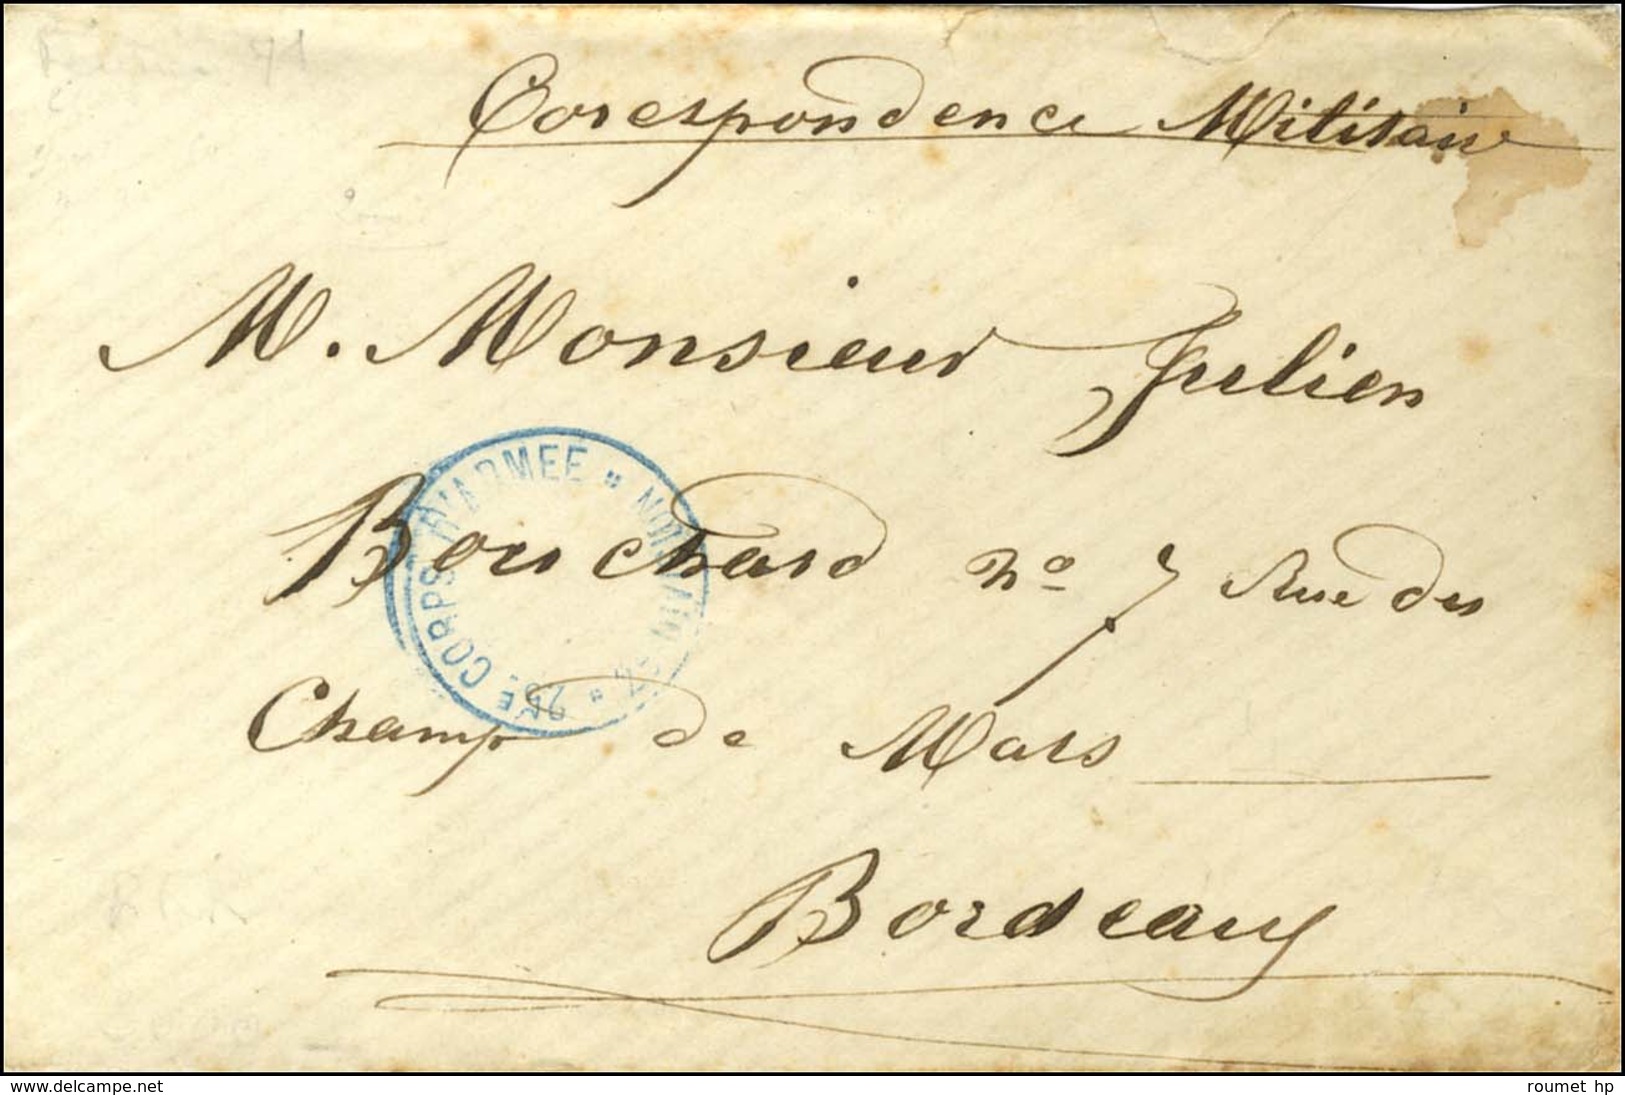 71
Corespondence Militaire
M. Monsieur Julien
Bouchard nº 7 Rue des
Champ de Mars
Bordeaux
CORPS D'ARMEE
www.delcampe.net
roumet hp